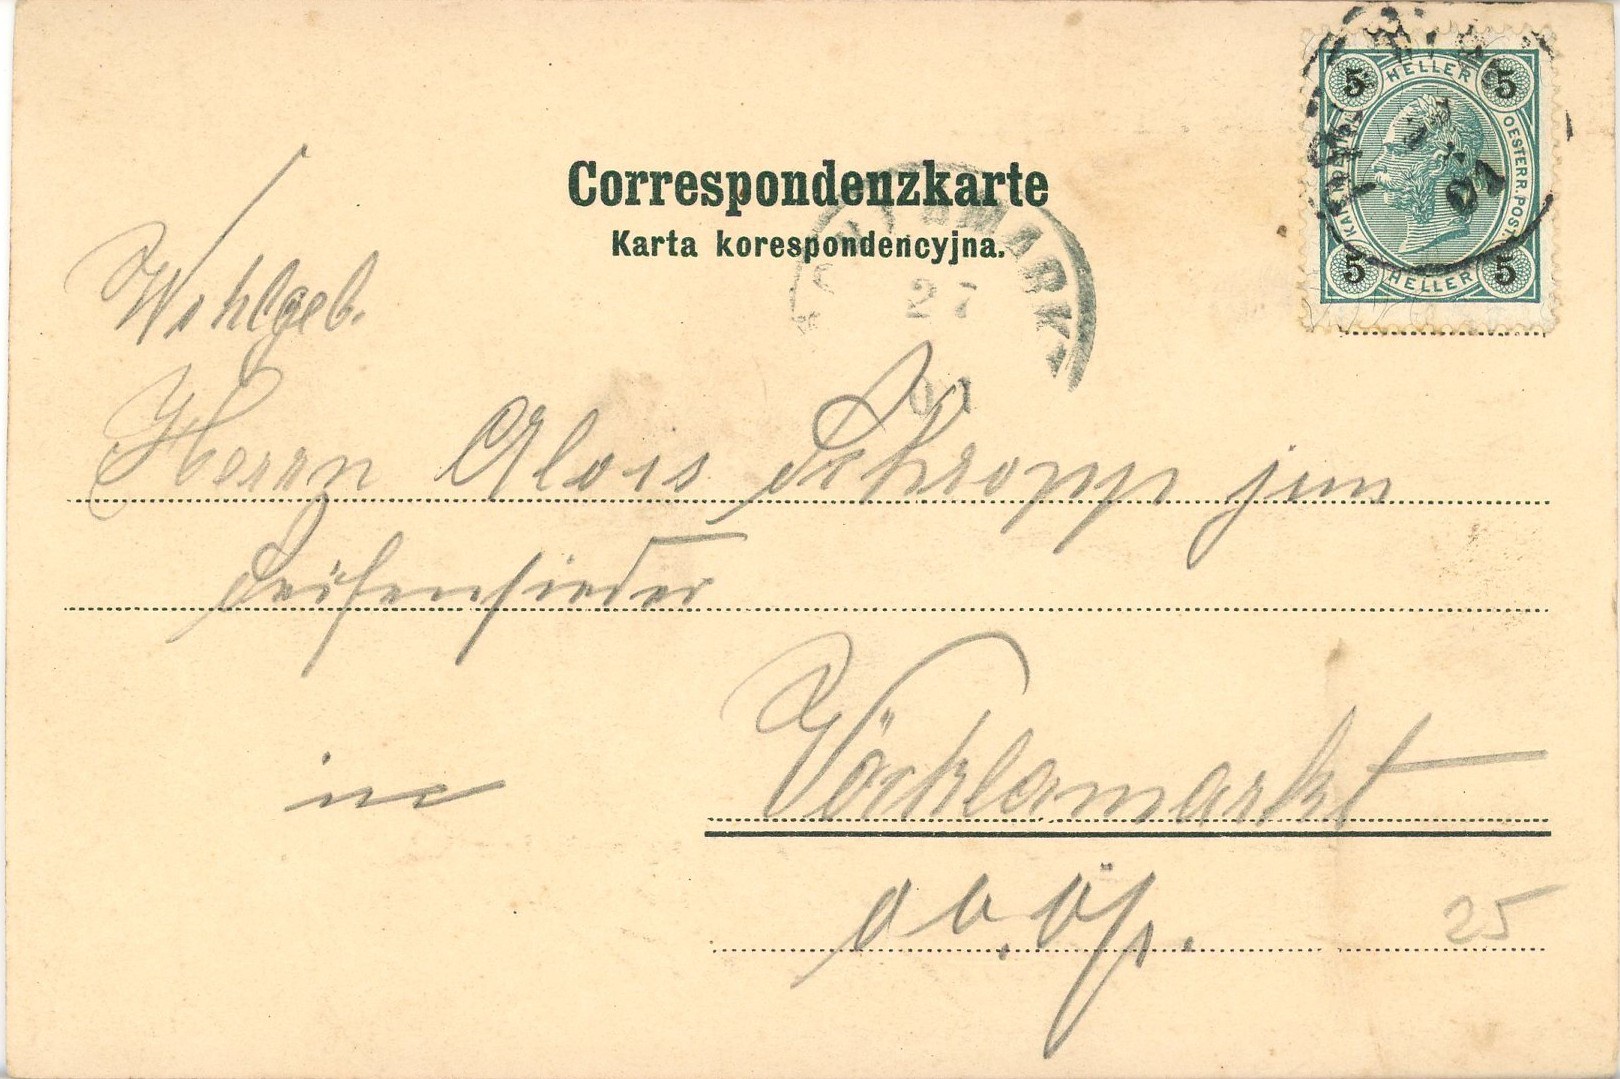 Correspondenzkarte
Karta korespondencyjna.
5 HELLER 5
OESTERR. POST.
5 HELLER 5
27
01
Wohlgeb.
Herrn Alois Schropp jun
Seifensieder
in
Vöcklamarkt
Ob. Öst.
25